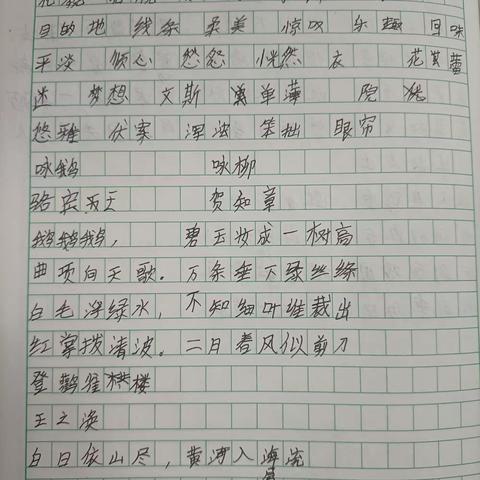 目的地 线条 柔美 惊叹 乐趣 回味
平淡 倾心 悠悠 恍然 衣 花
迷 梦想 文斯 单薄 院
悠雅 伏案 浑浊 笨拙 眼帘
咏鹅 咏柳
骆宾王 贺知章
鹅鹅鹅, 碧玉妆成一树高
曲项向天歌. 万条垂下绿丝绦
白毛浮绿水, 不知细叶谁裁出
红掌拨清波。 二月春风似剪刀
登鹳雀楼
王之涣
白日依山尽, 黄河入海流